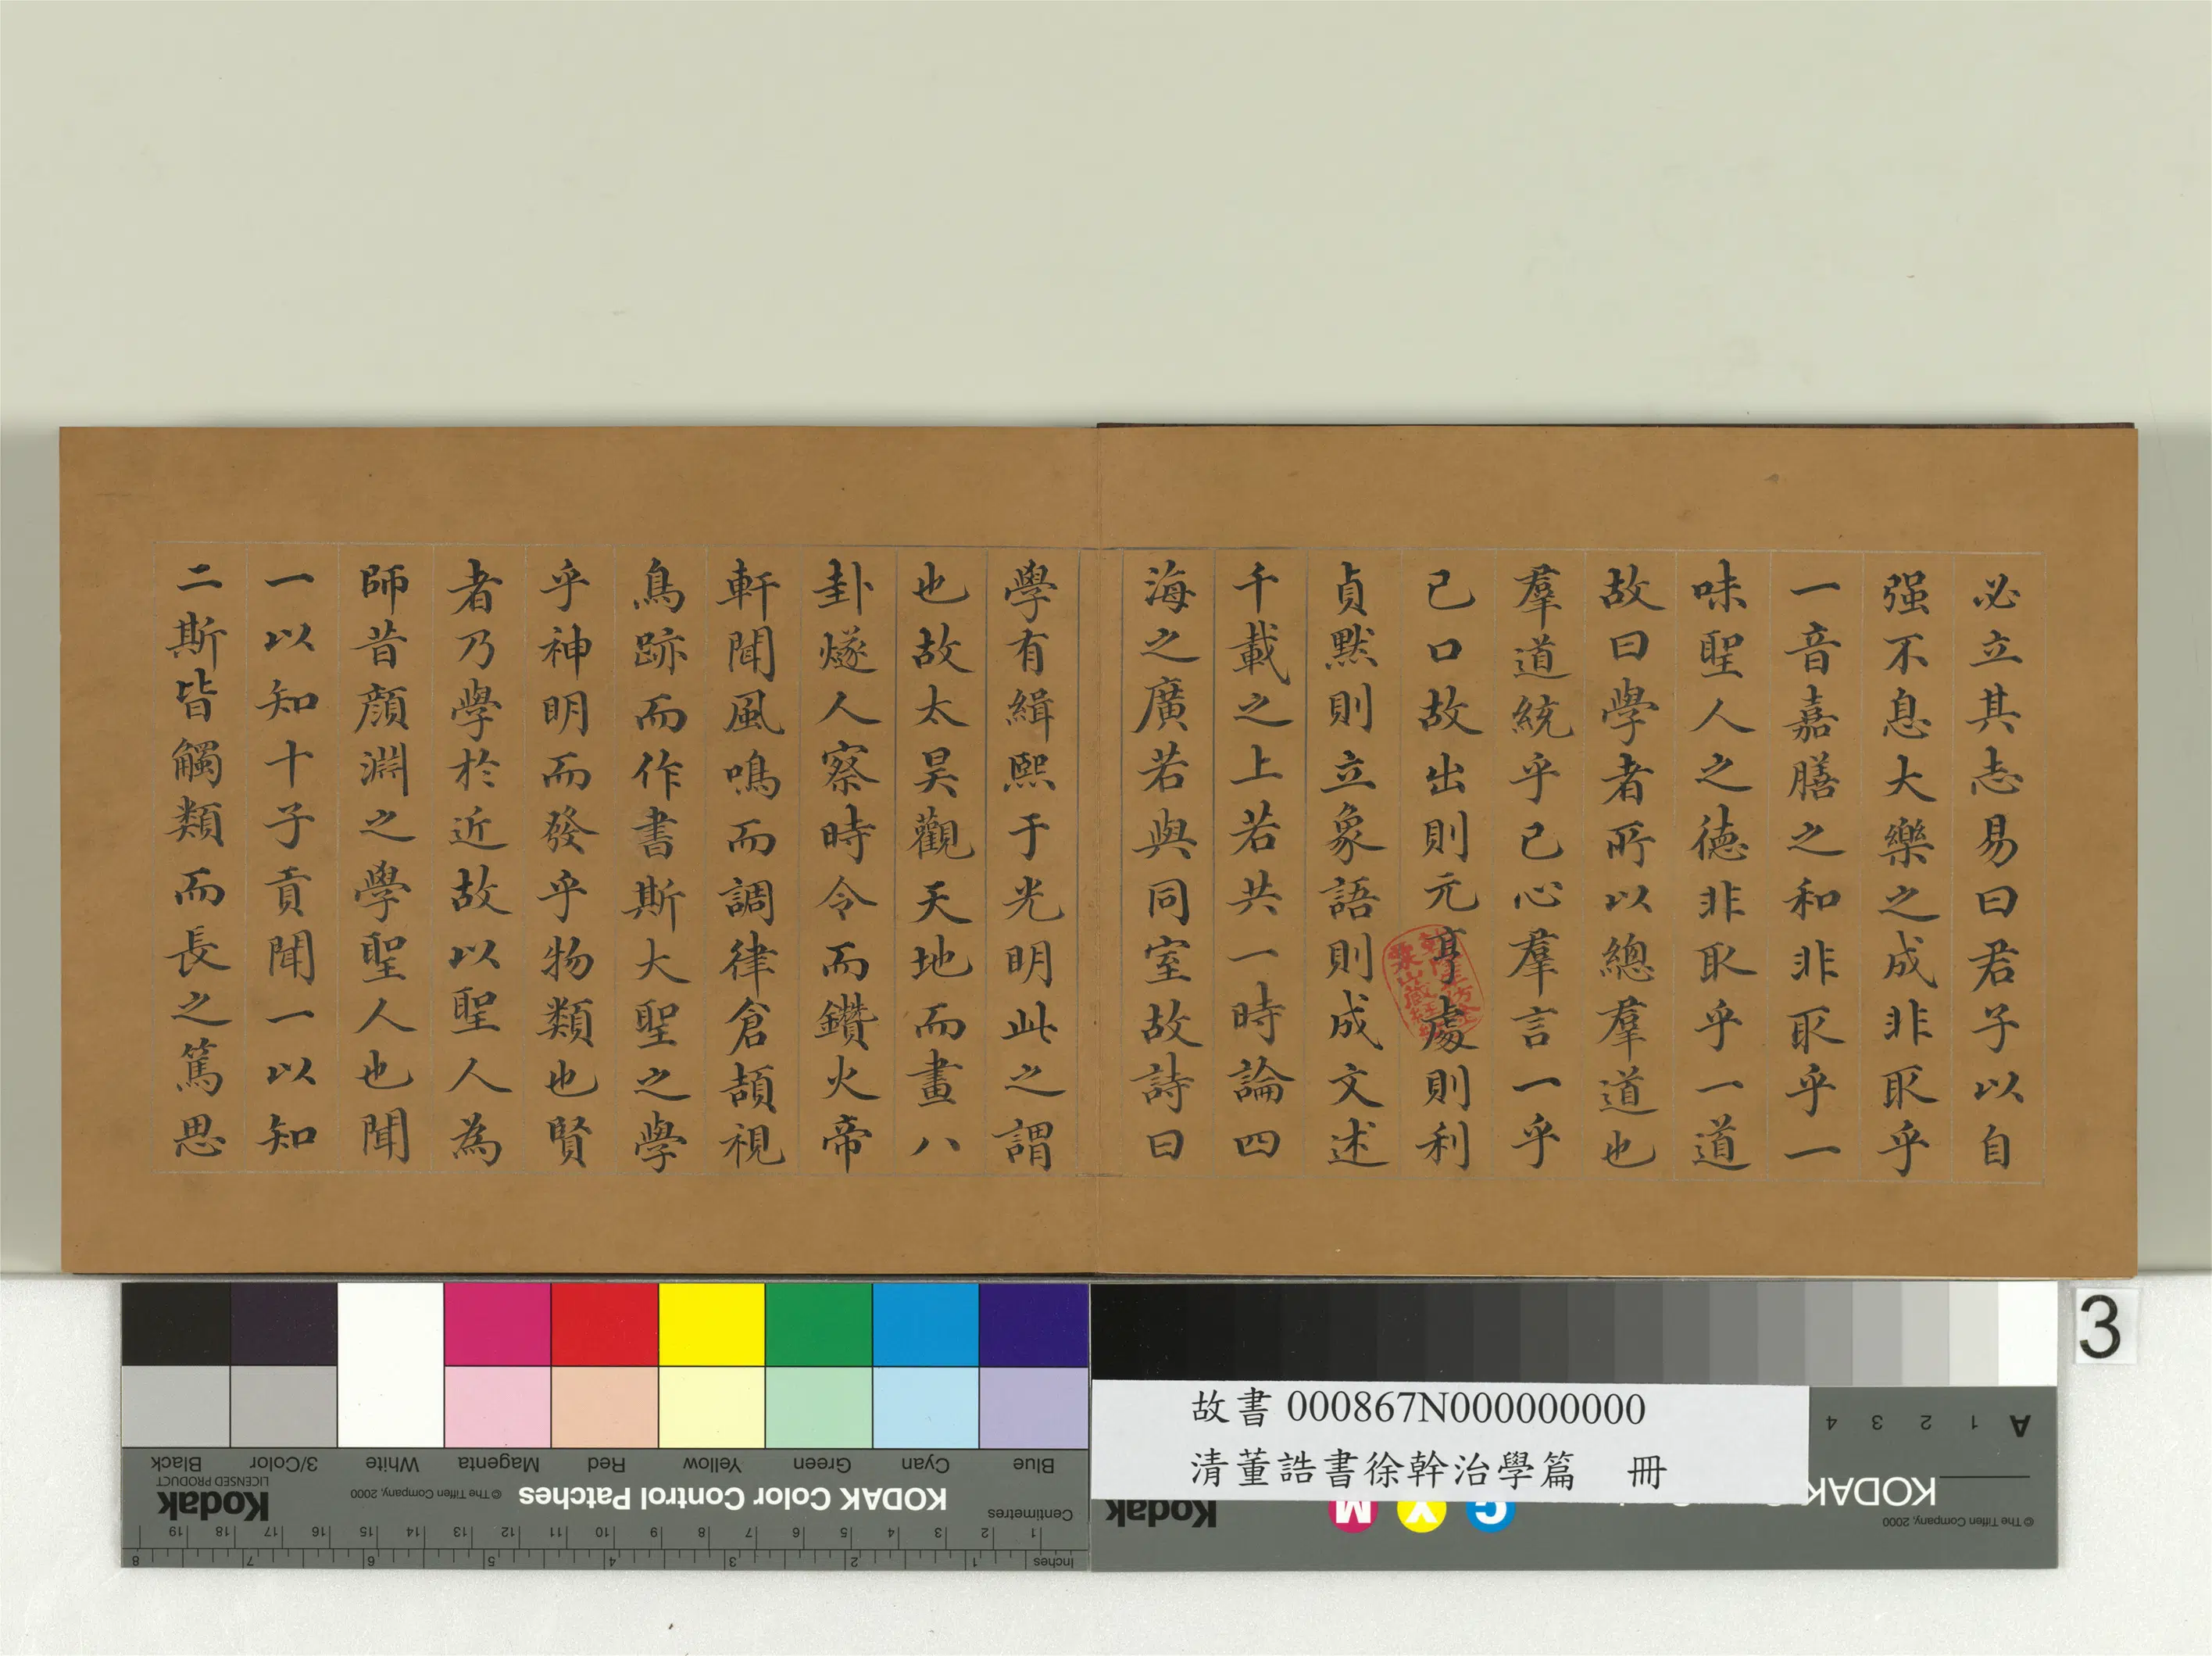 必立其志易曰君子以自
强不息大樂之成非取乎
一音嘉膳之和非取乎一
味聖人之德非取乎一道
故曰學者所以總羣道也
羣道統乎己心羣言一乎
己口故出則元亨處則利
貞默則立象語則成文述
千載之上若共一時論四
海之廣若與同室故詩曰
學有緝熙于光明此之謂
也故太昊觀天地而畫八
卦燧人察時令而鑽火帝
軒聞風鳴而調律倉頡視
鳥跡而作書斯大聖之學
乎神明而發乎物類也賢
者乃學於近故以聖人為
師昔顏淵之學聖人也聞
一以知十子貢聞一以知
二斯皆觸類而長之篤思
3
故書 000867N000000000
清董誥書徐幹治學篇 冊
Blue Cyan Green Yellow Red Magenta White 3/Color Black
KODAK Color Control Patches
© The Tiffen Company, 2000
Kodak
LICENSED PRODUCT
Centimetres
1 2 3 4 5 6 7 8 9 10 11 12 13 14 15 16 17 18 19
Inches 1 2 3 4 5 6 7 8
A 1 2 3 4
KODAK
© The Tiffen Company, 2000
C Y M
Kodak